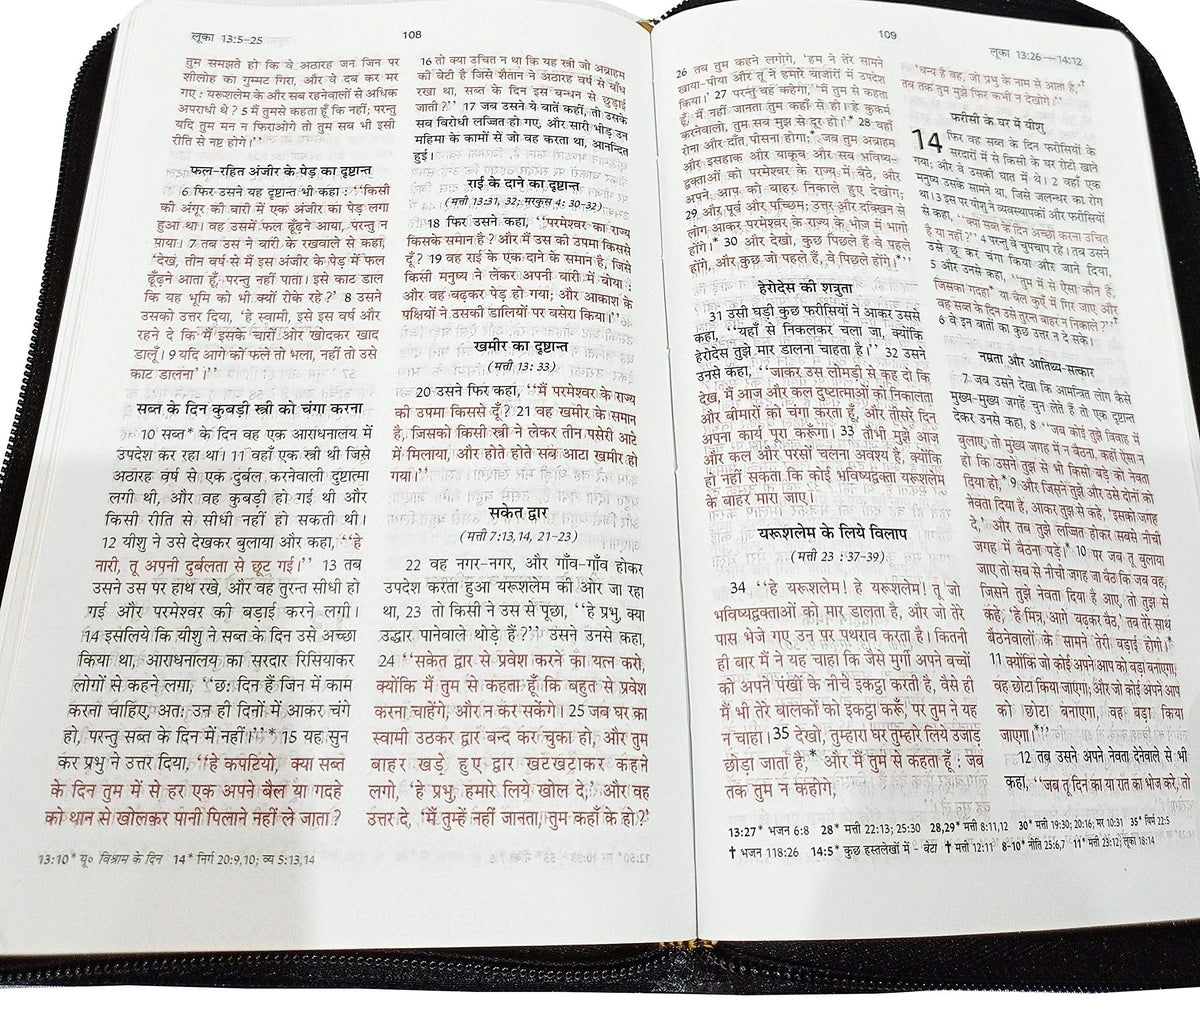 लूका 13:5–25
108
तुम समझते हो कि वे अठारह जन जिन पर
शीलोह का गुम्मट गिरा, और वे दब कर मर
गए : यरूशलेम के और सब रहनेवालों से अधिक
अपराधी थे ? 5 मैं तुमसे कहता हूँ कि नहीं; परन्तु
यदि तुम मन न फिराओगे तो तुम सब भी इसी
रीति से नष्ट होगे।’’
फल-रहित अंजीर के पेड़ का दृष्टान्त
6 फिर उसने यह दृष्टान्त भी कहा : ‘‘किसी
की अंगूर की बारी में एक अंजीर का पेड़ लगा
हुआ था। वह उसमें फल ढूँढ़ने आया, परन्तु न
पाया। 7 तब उस ने बारी के रखवाले से कहा,
‘देख, तीन वर्ष से मैं इस अंजीर के पेड़ में फल
ढूँढ़ने आता हूँ, परन्तु नहीं पाता। इसे काट डाल
कि यह भूमि को भी क्यों रोके रहे ?’ 8 उसने
उसको उत्तर दिया, ‘हे स्वामी, इसे इस वर्ष और
रहने दे कि मैं इसके चारों ओर खोदकर खाद
डालूँ। 9 यदि आगे को फले तो भला, नहीं तो उसे
काट डालना’।’’
सब्त के दिन कुबड़ी स्त्री को चंगा करना
10 सब्त* के दिन वह एक आराधनालय में
उपदेश कर रहा था। 11 वहाँ एक स्त्री थी जिसे
अठारह वर्ष से एक दुर्बल करनेवाली दुष्टात्मा
लगी थी, और वह कुबड़ी हो गई थी और
किसी रीति से सीधी नहीं हो सकती थी।
12 यीशु ने उसे देखकर बुलाया और कहा, ‘‘हे
नारी, तू अपनी दुर्बलता से छूट गई।’’ 13 तब
उसने उस पर हाथ रखे, और वह तुरन्त सीधी हो
गई और परमेश्वर की बड़ाई करने लगी।
14 इसलिये कि यीशु ने सब्त के दिन उसे अच्छा
किया था, आराधनालय का सरदार रिसियाकर
लोगों से कहने लगा, ‘‘छ: दिन हैं जिन में काम
करना चाहिए, अत: उन ही दिनों में आकर चंगे
हो, परन्तु सब्त के दिन में नहीं।’’* 15 यह सुन
कर प्रभु ने उत्तर दिया, ‘‘हे कपटियो, क्या सब्त
के दिन तुम में से हर एक अपने बैल या गदहे
को थान से खोलकर पानी पिलाने नहीं ले जाता ?
16 तो क्या उचित न था कि यह स्त्री जो अब्राहम
की बेटी है जिसे शैतान ने अठारह वर्ष से बाँध
रखा था, सब्त के दिन इस बन्धन से छुड़ाई
जाती ?’’ 17 जब उसने ये बातें कहीं, तो उसके
सब विरोधी लज्जित हो गए, और सारी भीड़ उन
महिमा के कामों से जो वह करता था, आनन्दित
हुई।
राई के दाने का दृष्टान्त
(मत्ती 13:31, 32; मरकुस 4: 30-32)
18 फिर उसने कहा, ‘‘परमेश्वर का राज्य
किसके समान है ? और मैं उस की उपमा किससे
दूँ ? 19 वह राई के एक दाने के समान है, जिसे
किसी मनुष्य ने लेकर अपनी बारी में बोया :
और वह बढ़कर पेड़ हो गया; और आकाश के
पक्षियों ने उसकी डालियों पर बसेरा किया।’’
खमीर का दृष्टान्त
(मत्ती 13: 33)
20 उसने फिर कहा, ‘‘मैं परमेश्वर के राज्य
की उपमा किससे दूँ ? 21 वह खमीर के समान
है, जिसको किसी स्त्री ने लेकर तीन पसेरी आटे
में मिलाया, और होते होते सब आटा खमीर हो
गया।’’
सकेत द्वार
(मत्ती 7:13,14, 21–23)
22 वह नगर-नगर, और गाँव-गाँव होकर
उपदेश करता हुआ यरूशलेम की ओर जा रहा
था, 23 तो किसी ने उस से पूछा, ‘‘हे प्रभु, क्या
उद्धार पानेवाले थोड़े हैं ?’’ उसने उनसे कहा,
24 ‘‘सकेत द्वार से प्रवेश करने का यत्न करो,
क्योंकि मैं तुम से कहता हूँ कि बहुत से प्रवेश
करना चाहेंगे, और न कर सकेंगे। 25 जब घर का
स्वामी उठकर द्वार बन्द कर चुका हो, और तुम
बाहर खड़े हुए द्वार खटखटाकर कहने
लगो, ‘हे प्रभु, हमारे लिये खोल दे,’ और वह
उत्तर दे, ‘मैं तुम्हें नहीं जानता, तुम कहाँ के हो ?’
13:10* यू० विश्राम के दिन 14* निर्ग 20:9,10; व्य 5:13,14
109
लूका 13:26—14:12
26 तब तुम कहने लगोगे, ‘हम ने तेरे सामने
खाया-पीया और तू ने हमारे बाजारों में उपदेश
किया।’ 27 परन्तु वह कहेगा, ‘मैं तुम से कहता
हूँ, मैं नहीं जानता तुम कहाँ से हो। हे कुकर्म
करनेवालो, तुम सब मुझ से दूर हो।’* 28 वहाँ
रोना और दाँत पीसना होगा;* जब तुम अब्राहम
और इसहाक और याकूब और सब भविष्य-
द्वक्ताओं को परमेश्वर के राज्य में बैठे, और
अपने आप को बाहर निकाले हुए देखोगे;
29 और पूर्व और पच्छिम; उत्तर और दक्खिन से
लोग आकर परमेश्वर के राज्य के भोज में भागी
होंगे।* 30 और देखो, कुछ पिछले हैं वे पहले
होंगे, और कुछ जो पहले हैं, वे पिछले होंगे।’’
हेरोदेस की शत्रुता
31 उसी घड़ी कुछ फरीसियों ने आकर उससे
कहा, ‘‘यहाँ से निकलकर चला जा, क्योंकि
हेरोदेस तुझे मार डालना चाहता है।’’ 32 उसने
उनसे कहा, ‘‘जाकर उस लोमड़ी से कह दो कि
देख, मैं आज और कल दुष्टात्माओं को निकालता
और बीमारों को चंगा करता हूँ, और तीसरे दिन
अपना कार्य पूरा करूँगा। 33 तौभी मुझे आज
और कल और परसों चलना अवश्य है, क्योंकि
हो नहीं सकता कि कोई भविष्यद्वक्ता यरूशलेम
के बाहर मारा जाए।
यरूशलेम के लिये विलाप
(मत्ती 23 :37–39)
34 ‘‘हे यरूशलेम! हे यरूशलेम! तू जो
भविष्यद्वक्ताओं को मार डालता है, और जो तेरे
पास भेजे गए उन पर पथराव करता है। कितनी
ही बार मैं ने यह चाहा कि जैसे मुर्गी अपने बच्चों
को अपने पंखों के नीचे इकट्ठा करती है, वैसे ही
मैं भी तेरे बालकों को इकट्ठा करूँ, पर तुम ने यह
न चाहा। 35 देखो, तुम्हारा घर तुम्हारे लिये उजाड़
छोड़ा जाता है,* और मैं तुम से कहता हूँ : जब
तक तुम न कहोगे,
‘धन्य है वह, जो प्रभु के नाम से आता है,’†
तब तक तुम मुझे फिर कभी न देखोगे।’’
फरीसी के घर में यीशु
14 फिर वह सब्त के दिन फरीसियों के
सरदारों में से किसी के घर रोटी खाने
गया; और वे उसकी घात में थे। 2 वहाँ एक
मनुष्य उसके सामने था, जिसे जलन्धर का रोग
था। 3 इस पर यीशु ने व्यवस्थापकों और फरीसियों
से कहा, ‘‘क्या सब्त के दिन अच्छा करना उचित
है या नहीं ?’’ 4 परन्तु वे चुपचाप रहे। तब उसने
उसे छू कर चंगा किया और जाने दिया,
5 और उनसे कहा, ‘‘तुम में से ऐसा कौन है,
जिसका गदहा* या बैल कुएँ में गिर जाए और
वह सब्त के दिन उसे तुरन्त बाहर न निकाले ?’’†
6 वे इन बातों का कुछ उत्तर न दे सके।
नम्रता और आतिथ्य-सत्कार
7 जब उसने देखा कि आमन्त्रित लोग कैसे
मुख्य-मुख्य जगहें चुन लेते हैं तो एक दृष्टान्त
देकर उनसे कहा, 8 ‘‘जब कोई तुझे विवाह में
बुलाए, तो मुख्य जगह में न बैठना, कहीं ऐसा न
हो कि उसने तुझ से भी किसी बड़े को नेवता
दिया हो,* 9 और जिसने तुझे और उसे दोनों को
नेवता दिया है, आकर तुझ से कहे, ‘इसको जगह
दे,’ और तब तुझे लज्जित होकर सबसे नीची
जगह में बैठना पड़े। 10 पर जब तू बुलाया
जाए तो सब से नीची जगह जा बैठ कि जब वह,
जिसने तुझे नेवता दिया है आए, तो तुझ से
कहे, ‘हे मित्र, आगे बढ़कर बैठ,’ तब तेरे साथ
बैठनेवालों के सामने तेरी बड़ाई होगी।*
11 क्योंकि जो कोई अपने आप को बड़ा बनाएगा,
वह छोटा किया जाएगा; और जो कोई अपने आप
को छोटा बनाएगा, वह बड़ा किया
जाएगा।*’’
12 तब उसने अपने नेवता देनेवाले से भी
कहा, ‘‘जब तू दिन का या रात का भोज करे, तो
13:27* भजन 6:8 28* मत्ती 22:13; 25:30 28,29* मत्ती 8:11,12 30* मत्ती 19:30; 20:16; मर 10:31 35* यिर्म 22:5
† भजन 118:26 14:5* कुछ हस्तलेखों में – बेटा † मत्ती 12:11 8–10* नीति 25:6,7 11* मत्ती 23:12; लूका 18:14